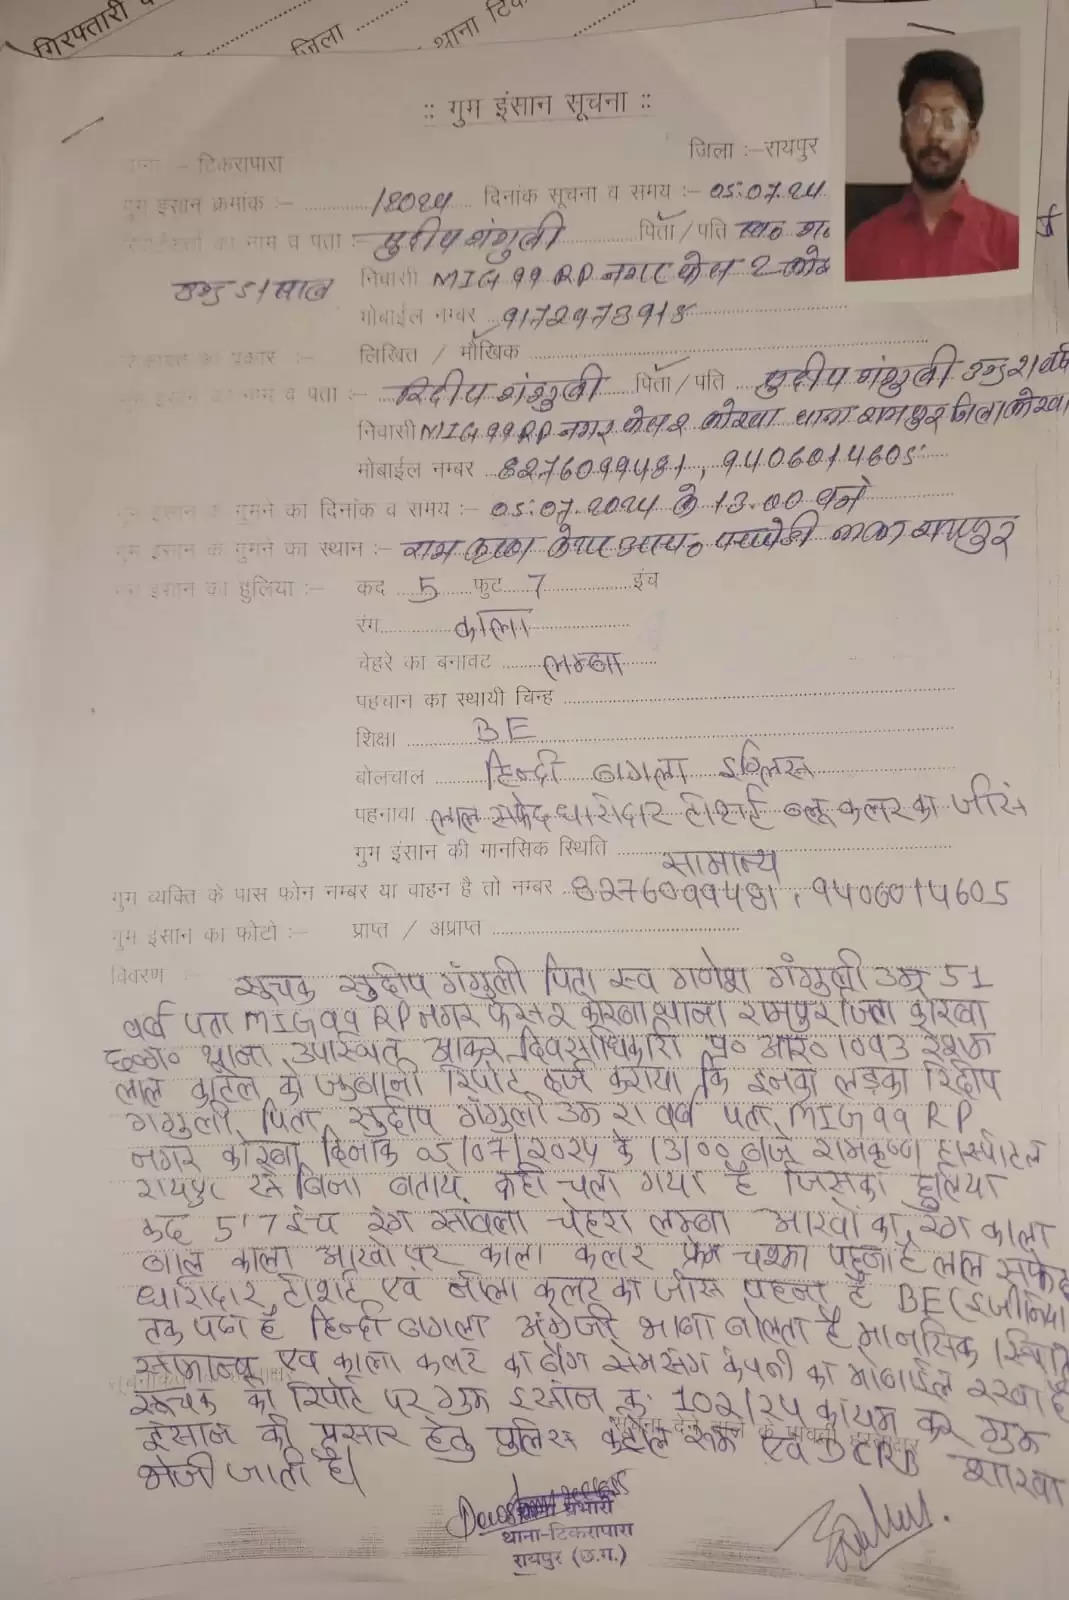 गिरफ्तारी
जिला
थाना
:: गुम इंसान सूचना ::
थाना :- टिकरापारा जिला :- रायपुर
गुम इंसान क्रमांक :- /2024 दिनांक सूचना व समय :- 05.07.24
का नाम व पता :- सुदीप गंगुली पिता / पति स्व० ग०
उम्र 51 साल निवासी MIG 99 RP नगर फेस 2
मोबाईल नम्बर 9172973918
लिखित / मौखिक
गुम इंसान का नाम व पता :- रिदीप गंगुली पिता / पति सुदीप गंगुली उम्र 21 वर्ष
निवासी MIG 99 RP नगर फेस 2 कोरबा थाना रामपुर जिला कोरबा
मोबाईल नम्बर 8276099481, 9406014605
गुम इंसान के गुमने का दिनांक व समय :- 05.07.2024 के 13.00 बजे
गुम इंसान के गुमने का स्थान :- राम कृष्ण केयर पचपेडी नाका रायपुर
गुम इंसान का हुलिया :- कद 5 फुट 7 इंच
रंग काला
चेहरे का बनावट लम्बा
पहचान का स्थायी चिन्ह
शिक्षा BE
बोलचाल हिन्दी बंगला इंग्लिस
पहनावा लाल सफेद धारीदार टीशर्ट ब्लू कलर का जींस
गुम इंसान की मानसिक स्थिति सामान्य
गुम व्यक्ति के पास फोन नम्बर या वाहन है तो नम्बर 8276099481, 9406014605
गुम इंसान का फोटो :- प्राप्त / अप्राप्त
विवरण :- सूचक सुदीप गंगुली पिता स्व गणेश गंगुली उम्र 51
वर्ष पता MIG 99 RP नगर फेस 2 कोरबा थाना रामपुर जिला कोरबा
छ०ग० थाना उपस्थित आकर दिवसाधिकारी प्र० आर० 1093 रेशम
लाल कुटेल को जुबानी रिपोर्ट दर्ज कराया कि इनका लड़का रिदीप
गंगुली पिता सुदीप गंगुली उम्र 21 वर्ष पता MIG 99 RP
नगर कोरबा दिनांक 05/07/2024 के 13/00 बजे रामकृष्ण हास्पीटल
रायपुर से बिना बताये कही चला गया है जिसका हुलिया
कद 5'7 इंच रंग सावला चेहरा लम्बा आखो का रंग काला
बाल काला आखो पर काला कलर फ्रेम चश्मा पहना है लाल सफेद
धारीदार टीशर्ट एवं नीला कलर का जींस पहना है BE (इंजीनियर
तक पढा है हिन्दी बंगला अंग्रेजी भाषा बोलता है मानसिक स्थिति
सामान्य एवं काला कलर का बैग सेमसंग कंपनी का मोबाईल रखा है
सूचक की रिपोर्ट पर गुम इंसान क्र. 102/24 कायम कर गुम
इंसान की प्रसार हेतु पुलिस कंट्रोल रूम एवं DCRB शाखा
भेजी जाती है।
प्रभारी
थाना-टिकरापारा
रायपुर (छ.ग.)